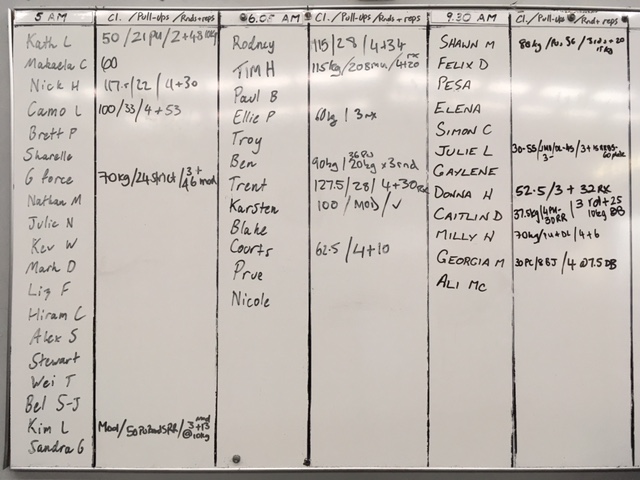 5 AM Cl. /Pull-ups/Rnds+reps
Kath L 50/21 PU/2+48 10kg
Makaela C 60
Nick H 117.5/22/4+30
Camo L 100/33/4+53
Brett P
Sharelle
G force 70kg/24 strict/3+46 mod
Nathan M
Julie N
Kev W
Mark D
Liz F
Hiram C
Alex S
Stewart
Wei T
Bel S-J
Kim L Mod/50 /3+13 mod @10kg
Sandra G
6.05 AM Cl. /Pull-ups/Rnds+reps
Rodney 115/28/4+34
Tim H 115kg/20 /4+20 rx
Paul B
Ellie P 60kg/3 rx
Troy
Ben 90kg/36 PU 20kg x3 rnd
Trent 127.5/28/4+30 Rx
Karsten 100/MOD/✓
Blake
Courts 62.5/4+10
Prue
Nicole
9.30 AM Cl. /Pull-ups/Rnds+reps
SHAWN M 80kg/ /3 rds+20 15kg
FELIX D
PESA
ELENA
SIMON C
JULIE L 30-55/
GAYLENE
DONNA H 52.5/3+32 RX
CAITLIN D 37.5kg/ /3 rd+25 10kg DB
MILLY H 70kg/ /4+6
GEORGIA M 30 PC/8 BJ/4 @7.5 DB
ALI MC